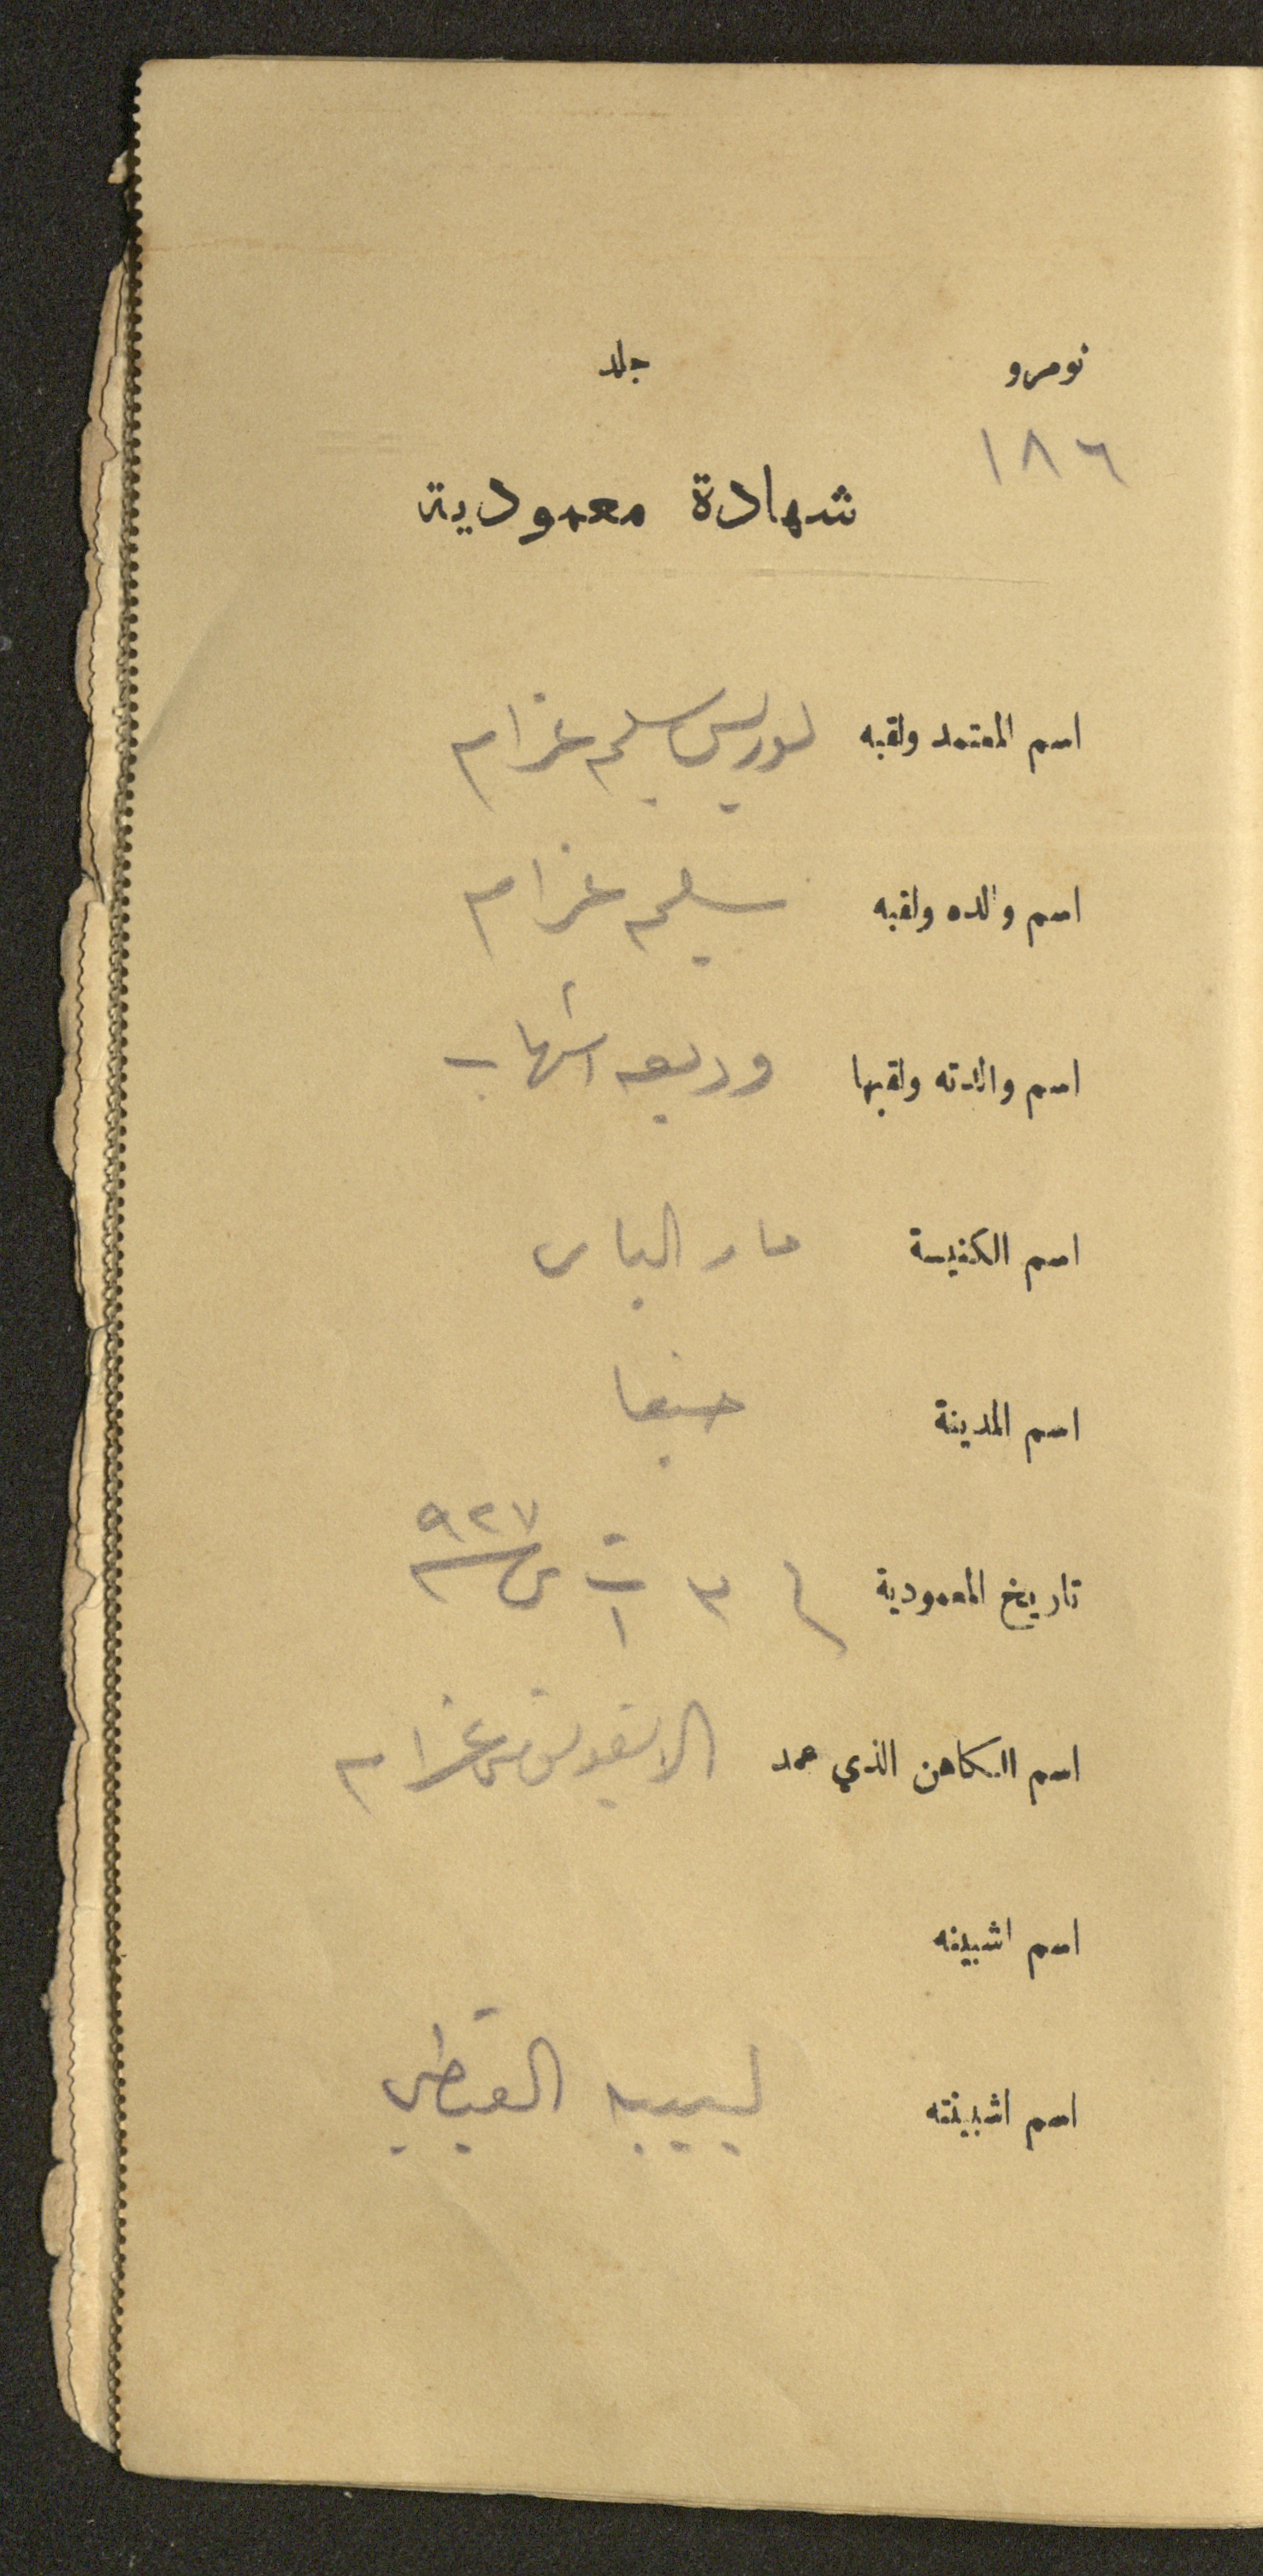 نومرو جلد
١٨٦
شهادة معمودية
اسم المعتمد ولقبه لوريس سليم عزام
اسم والده ولقبه سليم عزام
اسم والدته ولقبها وديعه شهاب
اسم الكنيسة مار الياس
اسم المدينة حيفا
تاريخ المعمودية ٣ ت ١ ٩٢٧
اسم الكاهن الذي عمد عزام
اسم اشبينه
اسم اشبينته لبيبه القبطي